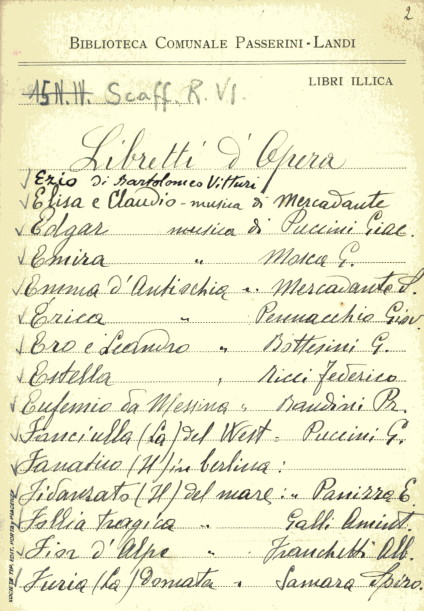 2
BIBLIOTECA COMUNALE PASSERINI-LANDI
LIBRI ILLICA
15 N. IV. Scaff. R. VI.
Libretti d'Opera
Ezio di Bartolomeo Vitturi
Elisa e Claudio - musica di Mercadante
Edgar musica di Puccini Giac.
Emira " Mosca G.
Emma d'Antiochia " Mercadante S.
Erica " Pennacchio Giov.
Ero e Leandro " Bottesini G.
Estella " Ricci Federico
Eufemio da Messina " Bandini Pr.
Fanciulla (La) del West = Puccini G.
Fanatico (Il) in berlina :
Fidanzato (Il) del mare : " Panizza E.
Follia tragica " Galli Amint.
Fior d'Alpe " Franchetti Alb.
Furia (La) Domata " Samara Spiro.